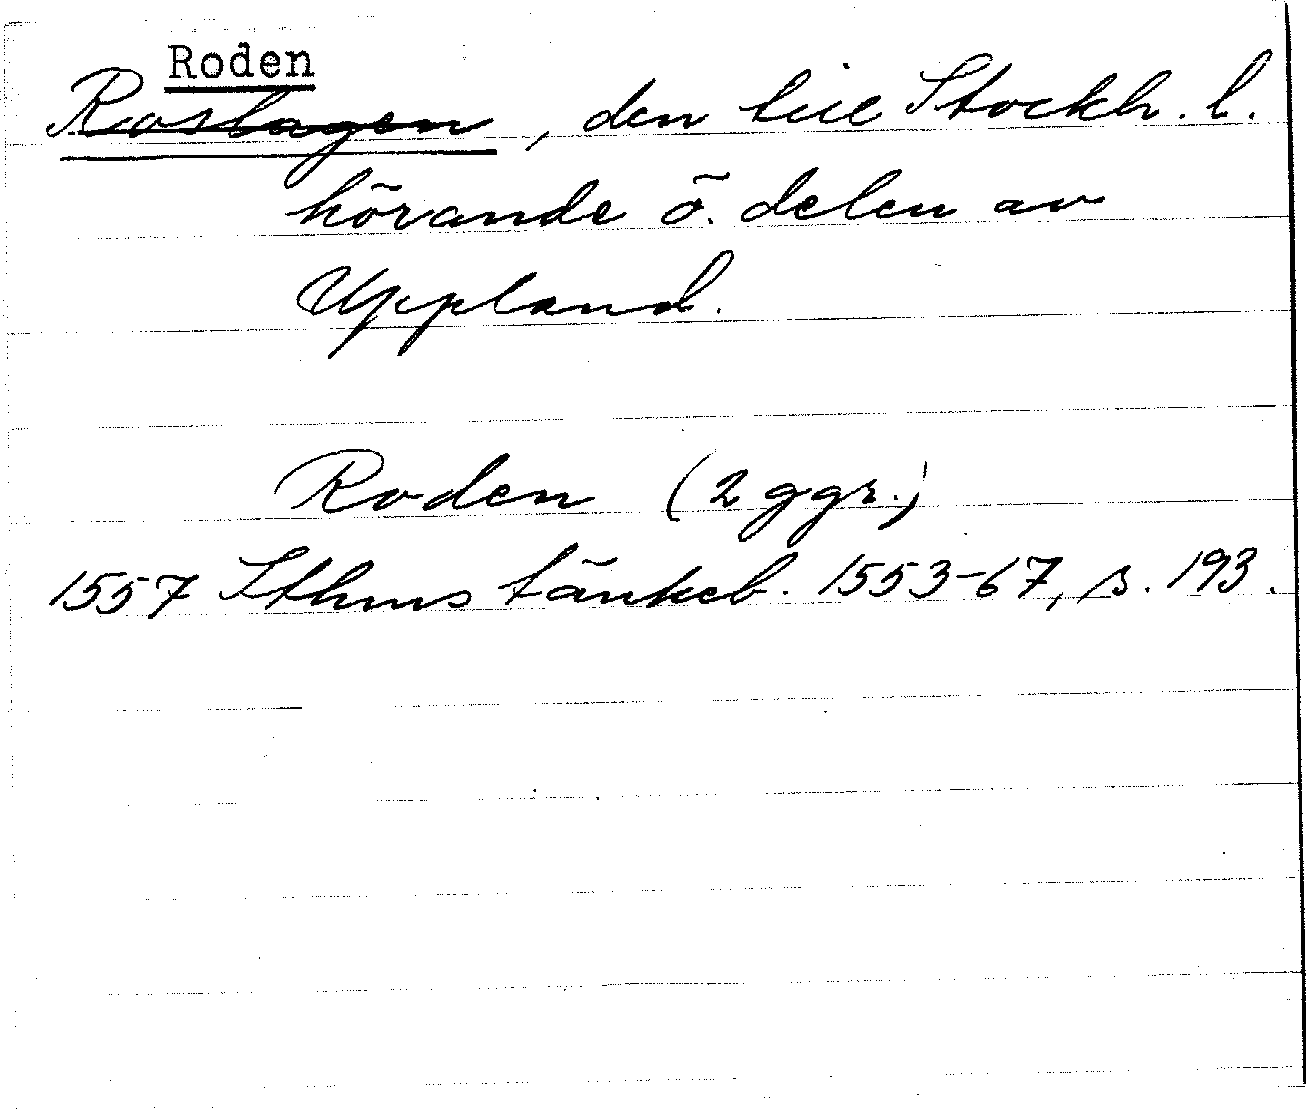 Roden
Roslagen, den till Stockh. l.
hörande ö. delen av
Uppland.
Roden (2 ggr.)
1557 Sthms tänkeb. 1553-67, s. 193.